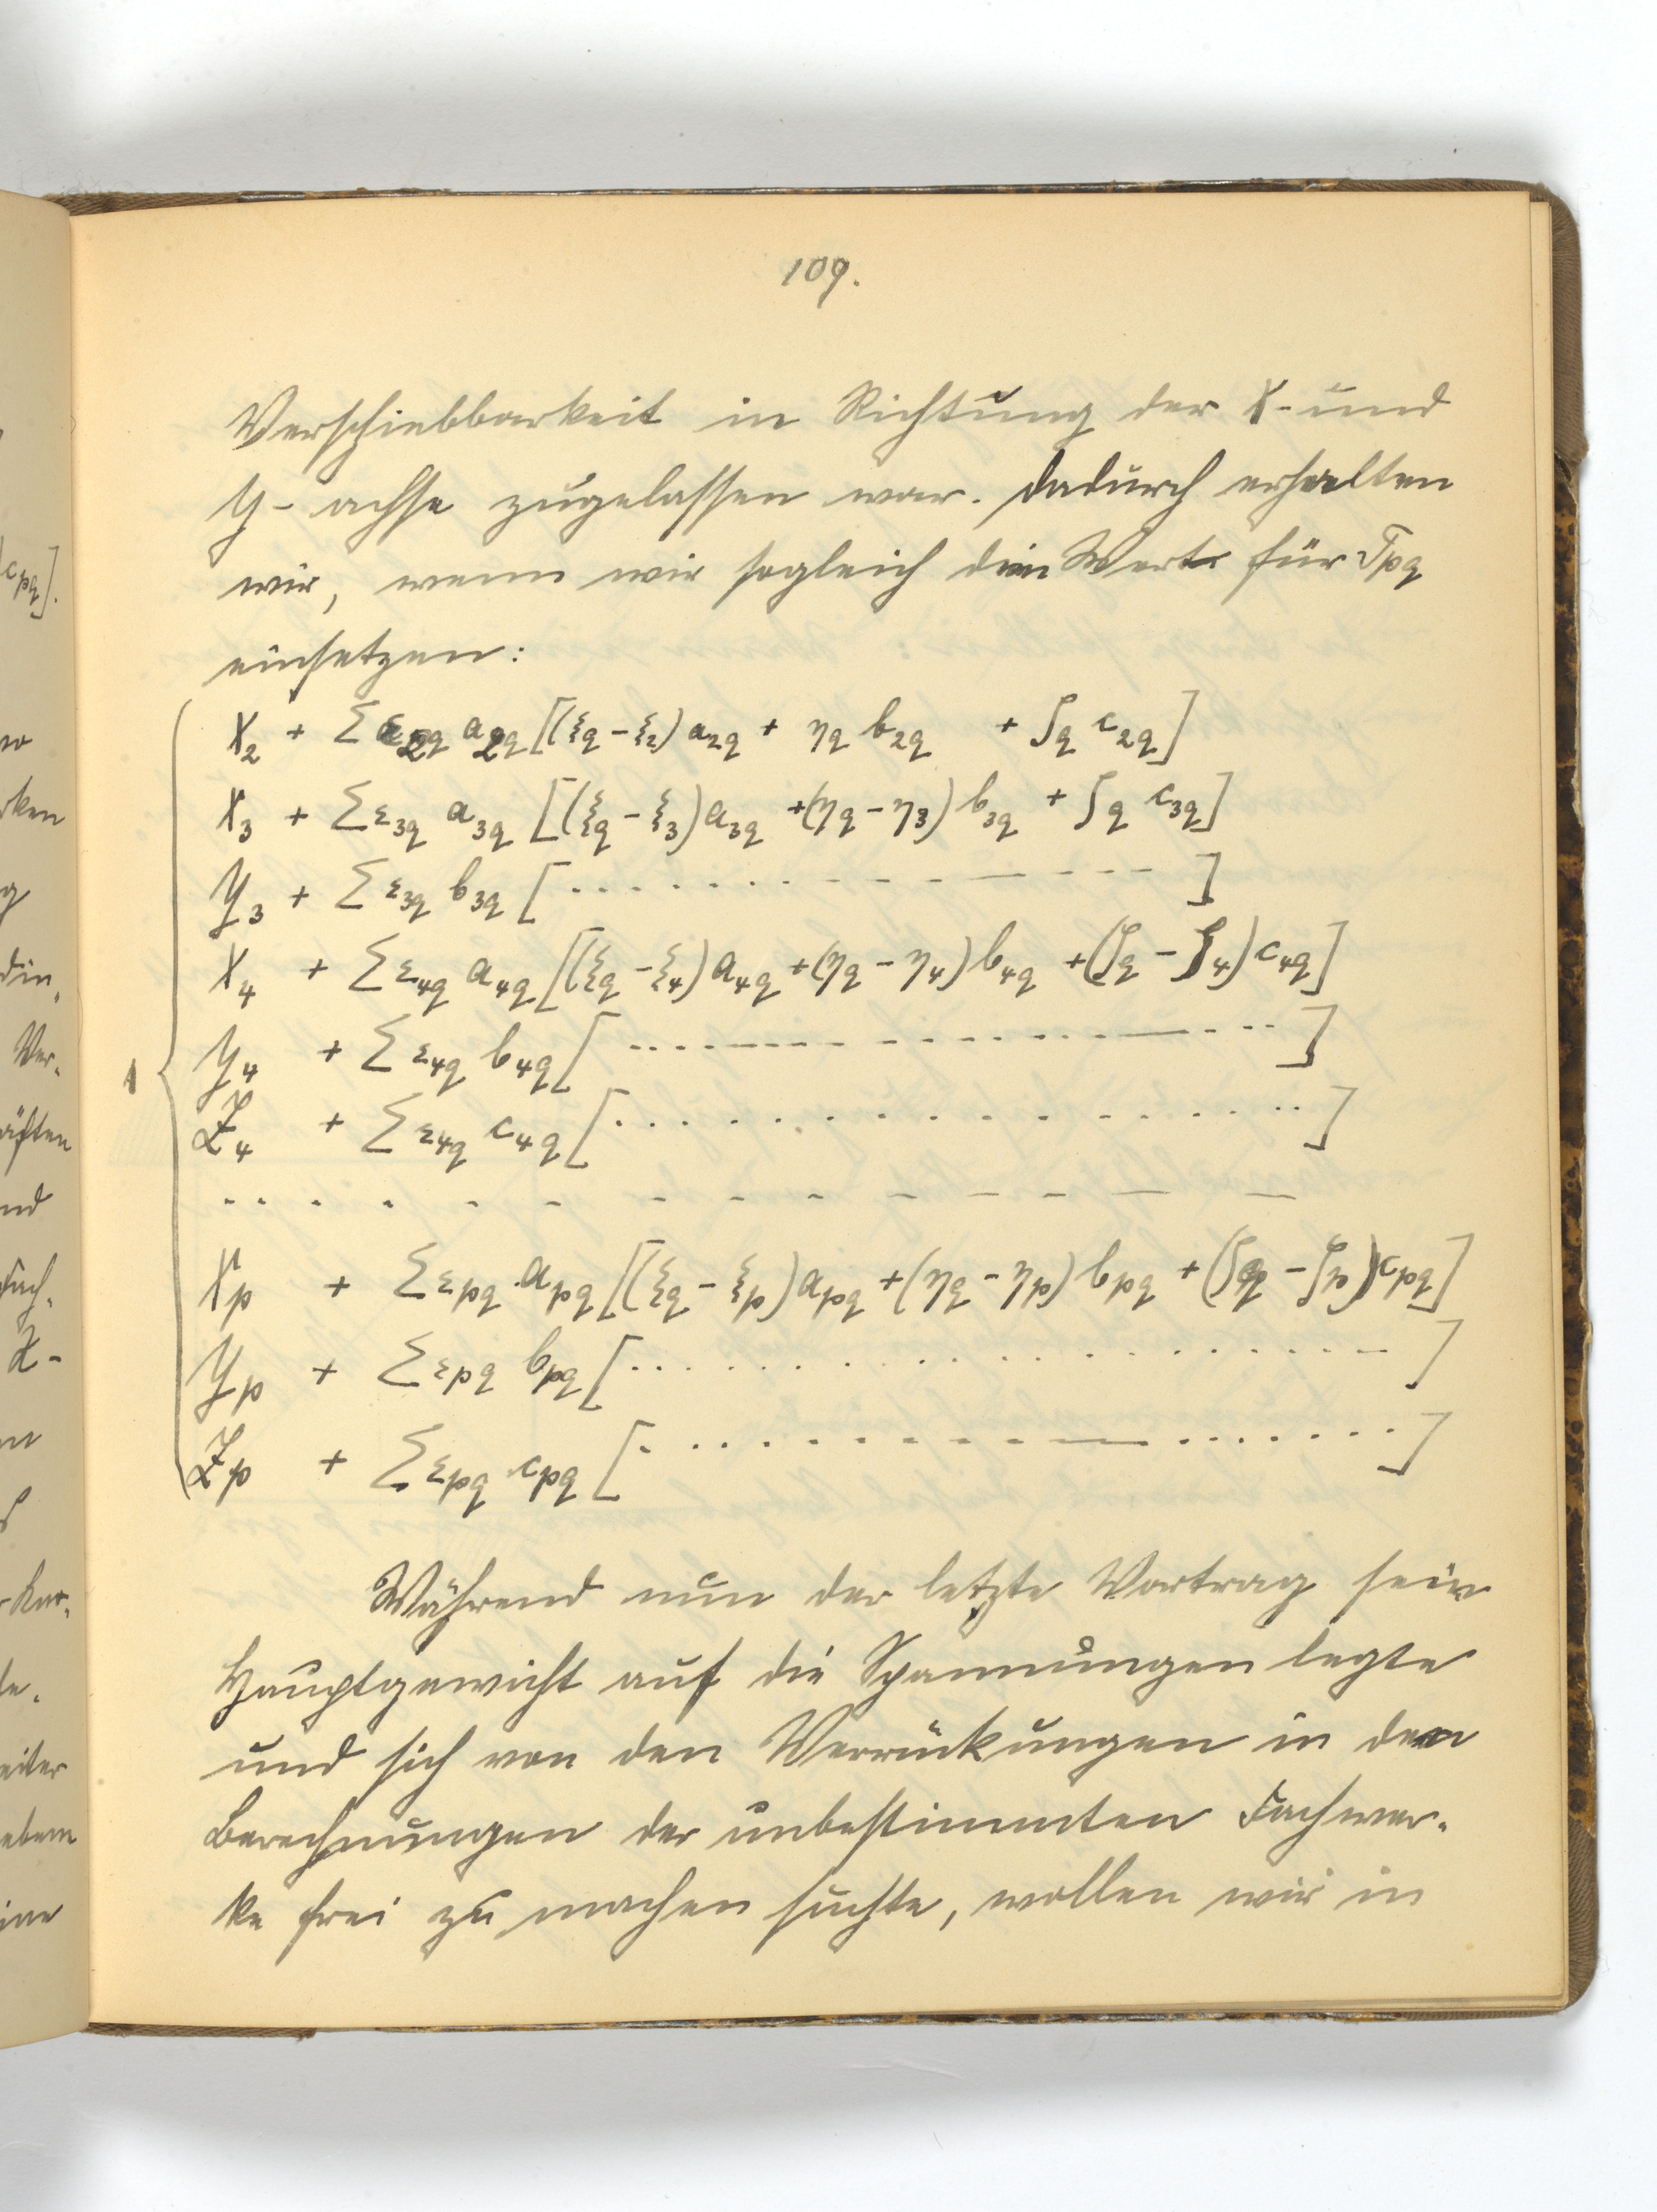 109.
Verschiebbarkeit in Richtung der X- und
Y- achse zugelassen war. Dadurch erhalten
wir, wenn wir sogleich den Wert für Tpq
einsetzen:
X₂ + Σ ε₂q a₂q [(ξq - ξ₂) a₂q + ηq b₂q + ζq c₂q]
X₃ + Σ ε₃q a₃q [(ξq - ξ₃) a₃q + (ηq - η₃) b₃q + ζq c₃q]
Y₃ + Σ ε₃q b₃q [ - - - - - - - - - - ]
X₄ + Σ ε₄q a₄q [(ξq - ξ₄) a₄q + (ηq - η₄) b₄q + (ζq - ζ₄) c₄q]
1 { Y₄ + Σ ε₄q b₄q [ - - - - - - - - - - ]
Z₄ + Σ ε₄q c₄q [ . . . . . . . . . . ]
- - - - - - - - - - - - - -
Xp + Σ εpq apq [(ξq - ξp) apq + (ηq - ηp) bpq + (ζq - ζp) cpq]
Yp + Σ εpq bpq [ . . . . . . . . . . ]
Zp + Σ εpq cpq [ . . . . . . . . . . ]
Während nun der letzte Vortrag sein
Hauptgewicht auf die Spannungen legte
und sich von den Verrückungen in den
Berechnungen der unbestimmten Fachwer-
ke frei zu machen suchte, wollen wir in